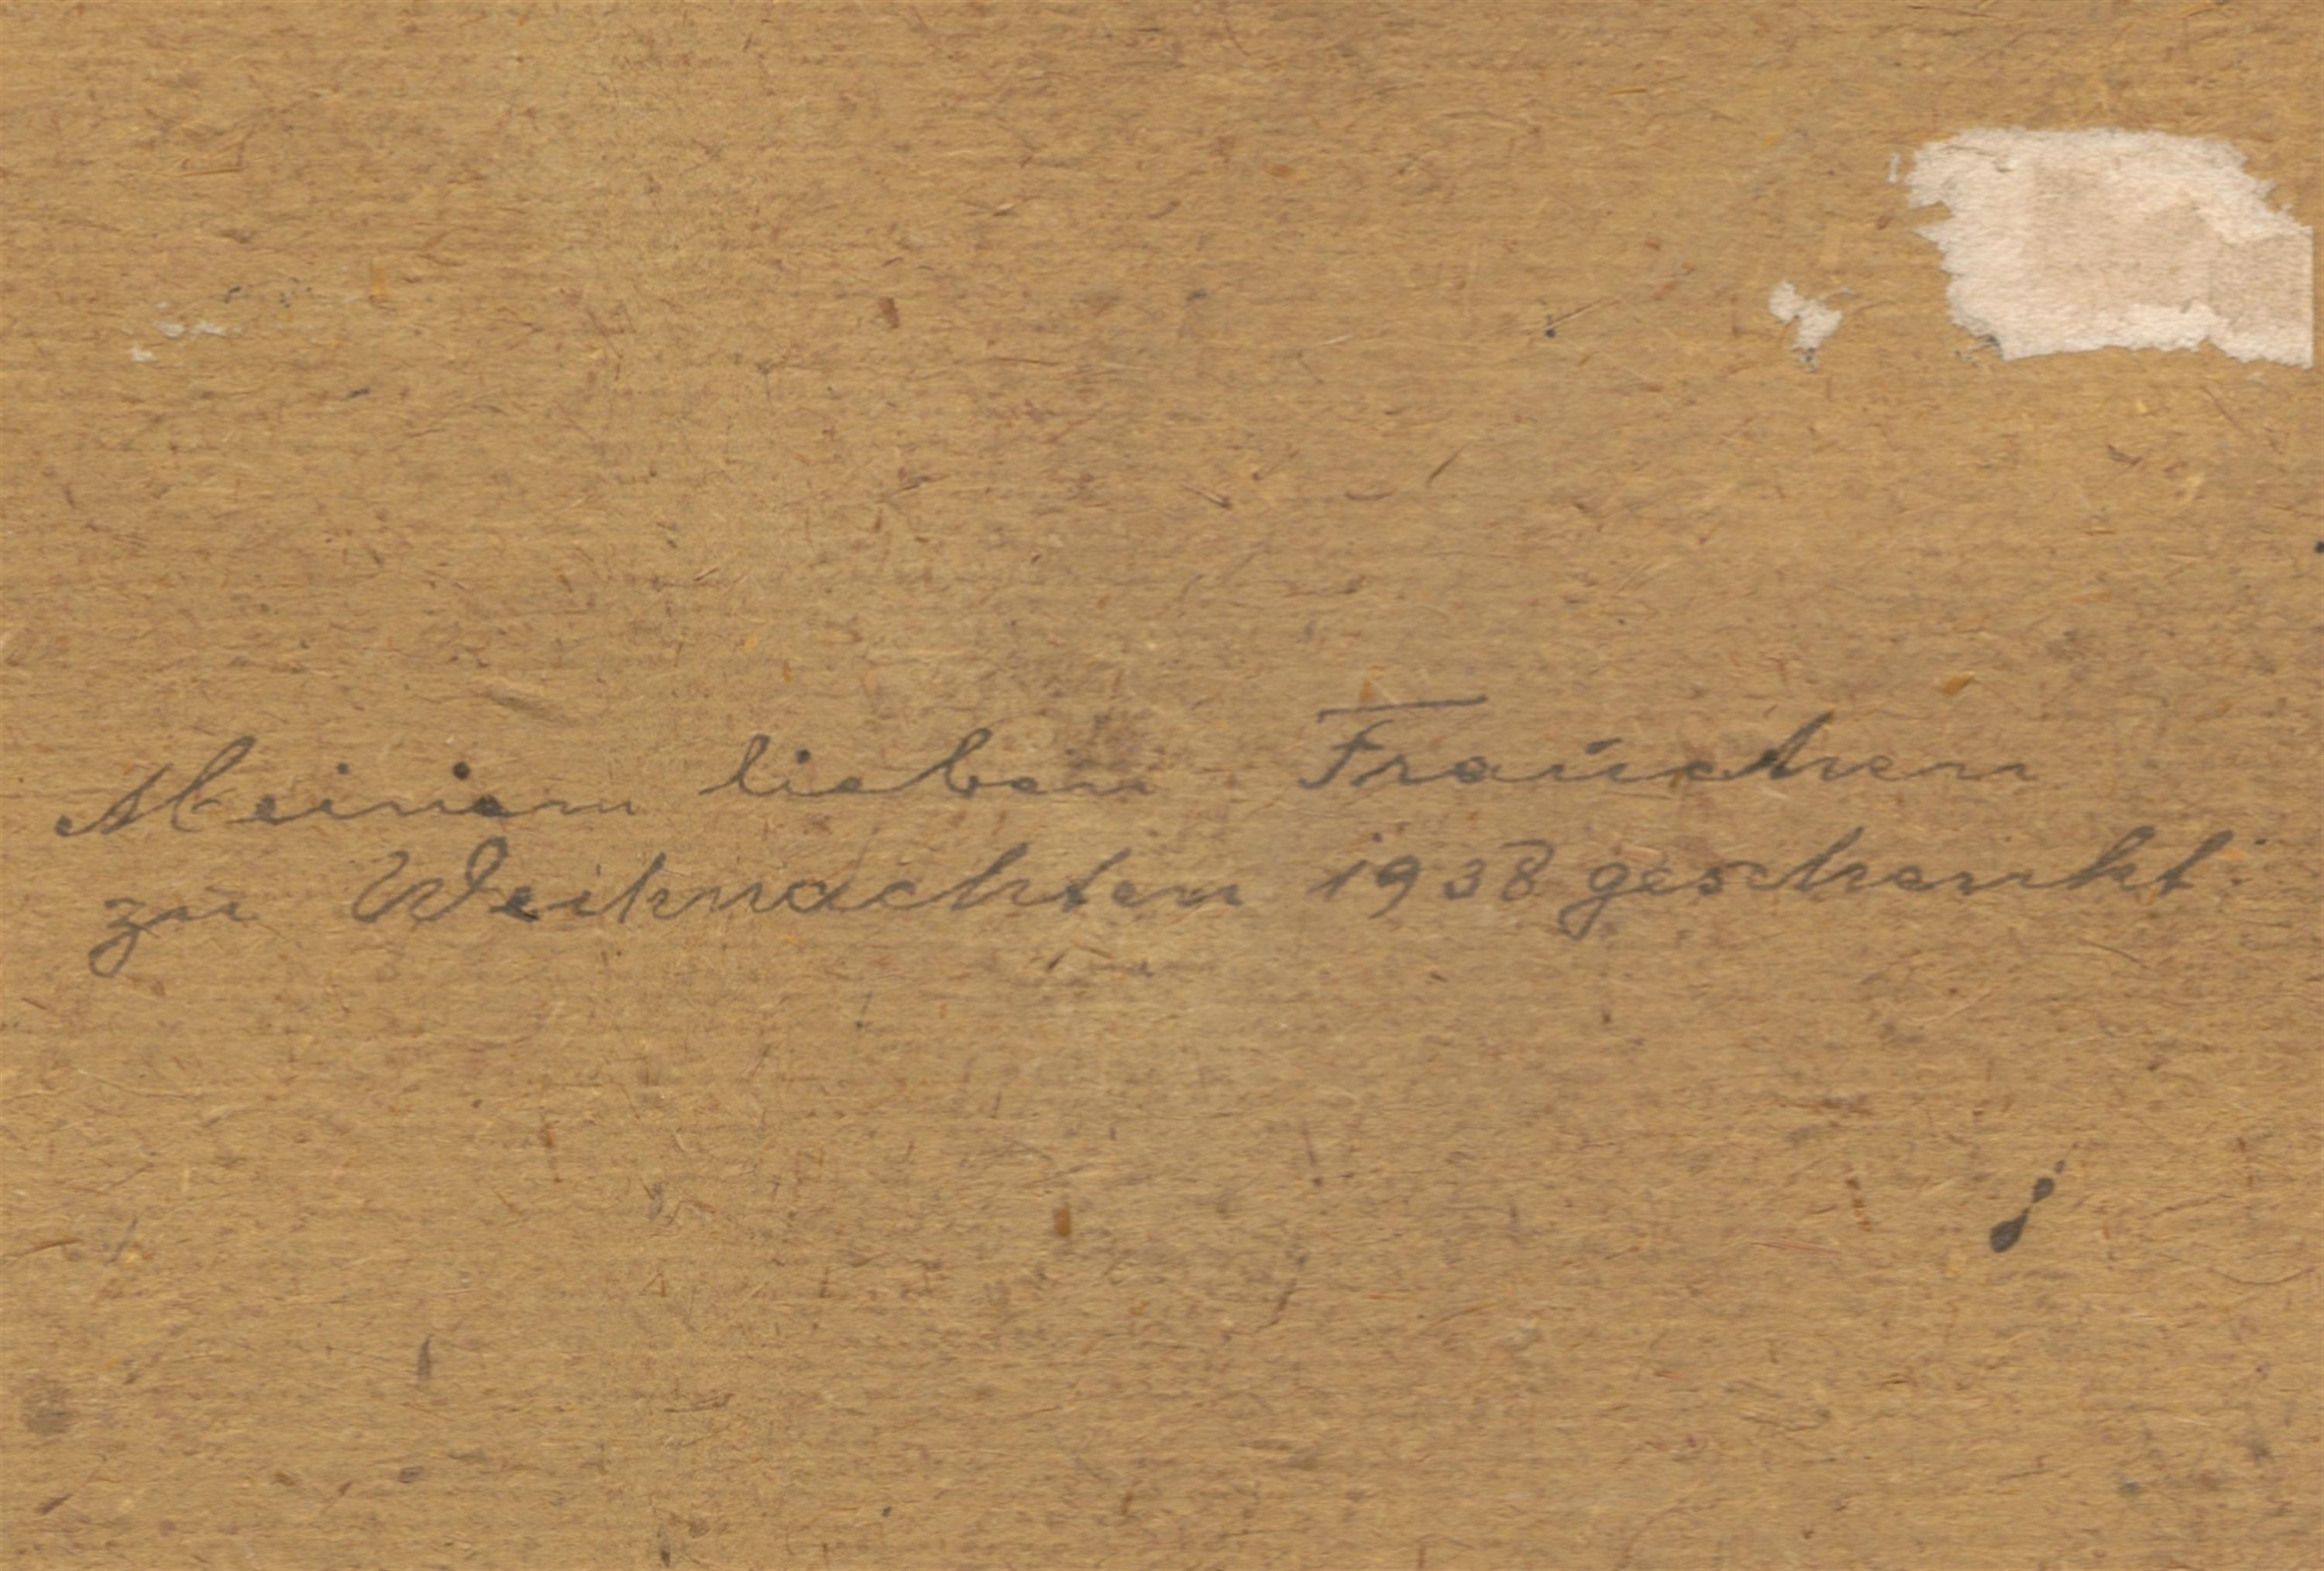 Meinem lieben Frauchen
zu Weihnachten 1938 geschenkt.